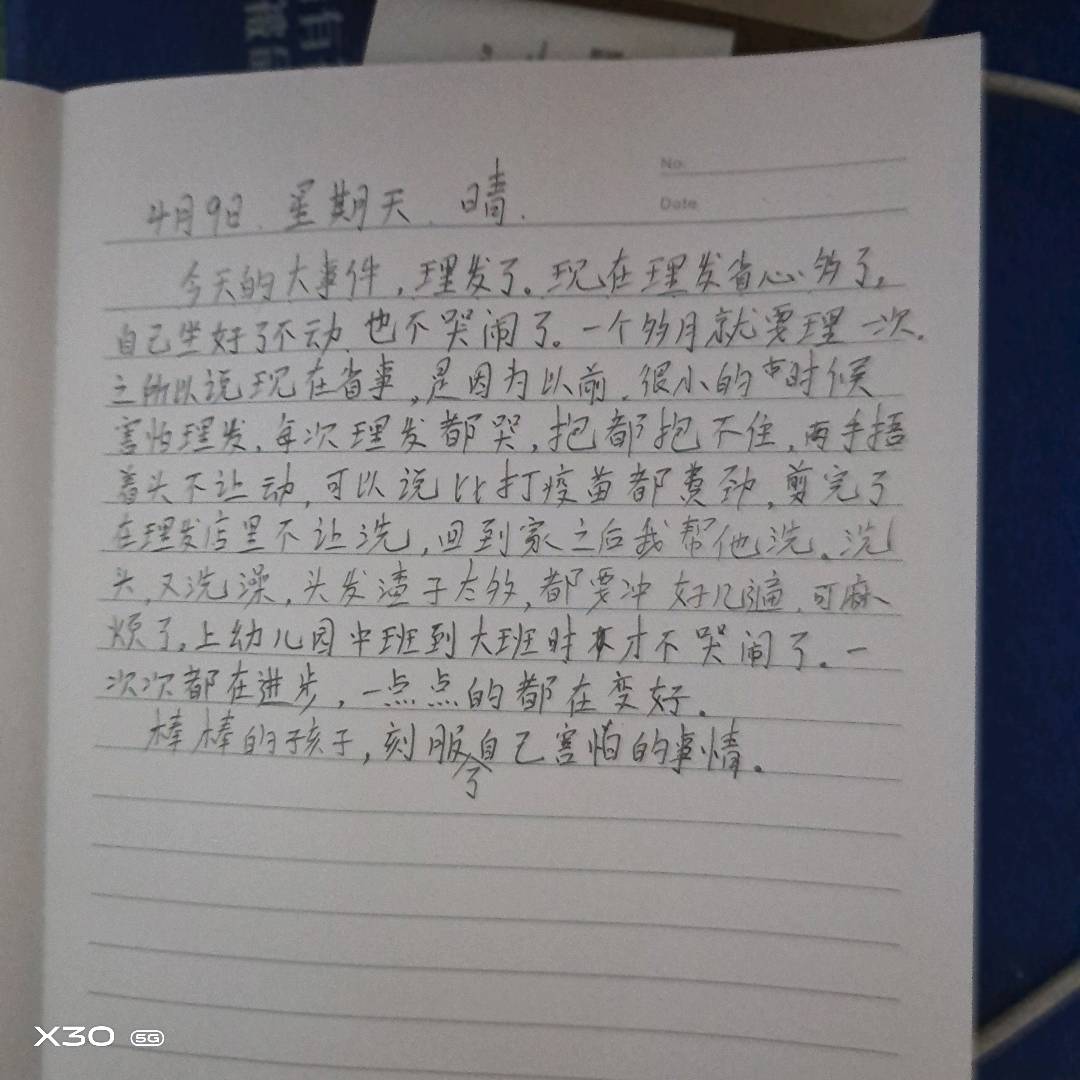 No.
Date
4月9日. 星期天. 晴.
今天的大事件,理发了。现在理发省心多了,
自己坐好了不动.也不哭闹了。一个多月就要理一次.
之所以说现在省事,是因为以前.很小的时候
害怕理发,每次理发都哭,抱都抱不住,两手捂
着头不让动,可以说比打疫苗都费劲,剪完了
在理发店里不让洗,回到家之后我帮他洗。洗
头,又洗澡,头发渣子太多,都要冲好几遍,可麻
烦了,上幼儿园中班到大班时才不哭闹了。一
次次都在进步,一点点的都在变好.
棒棒的孩子,刻服了自己害怕的事情。
X30 5G